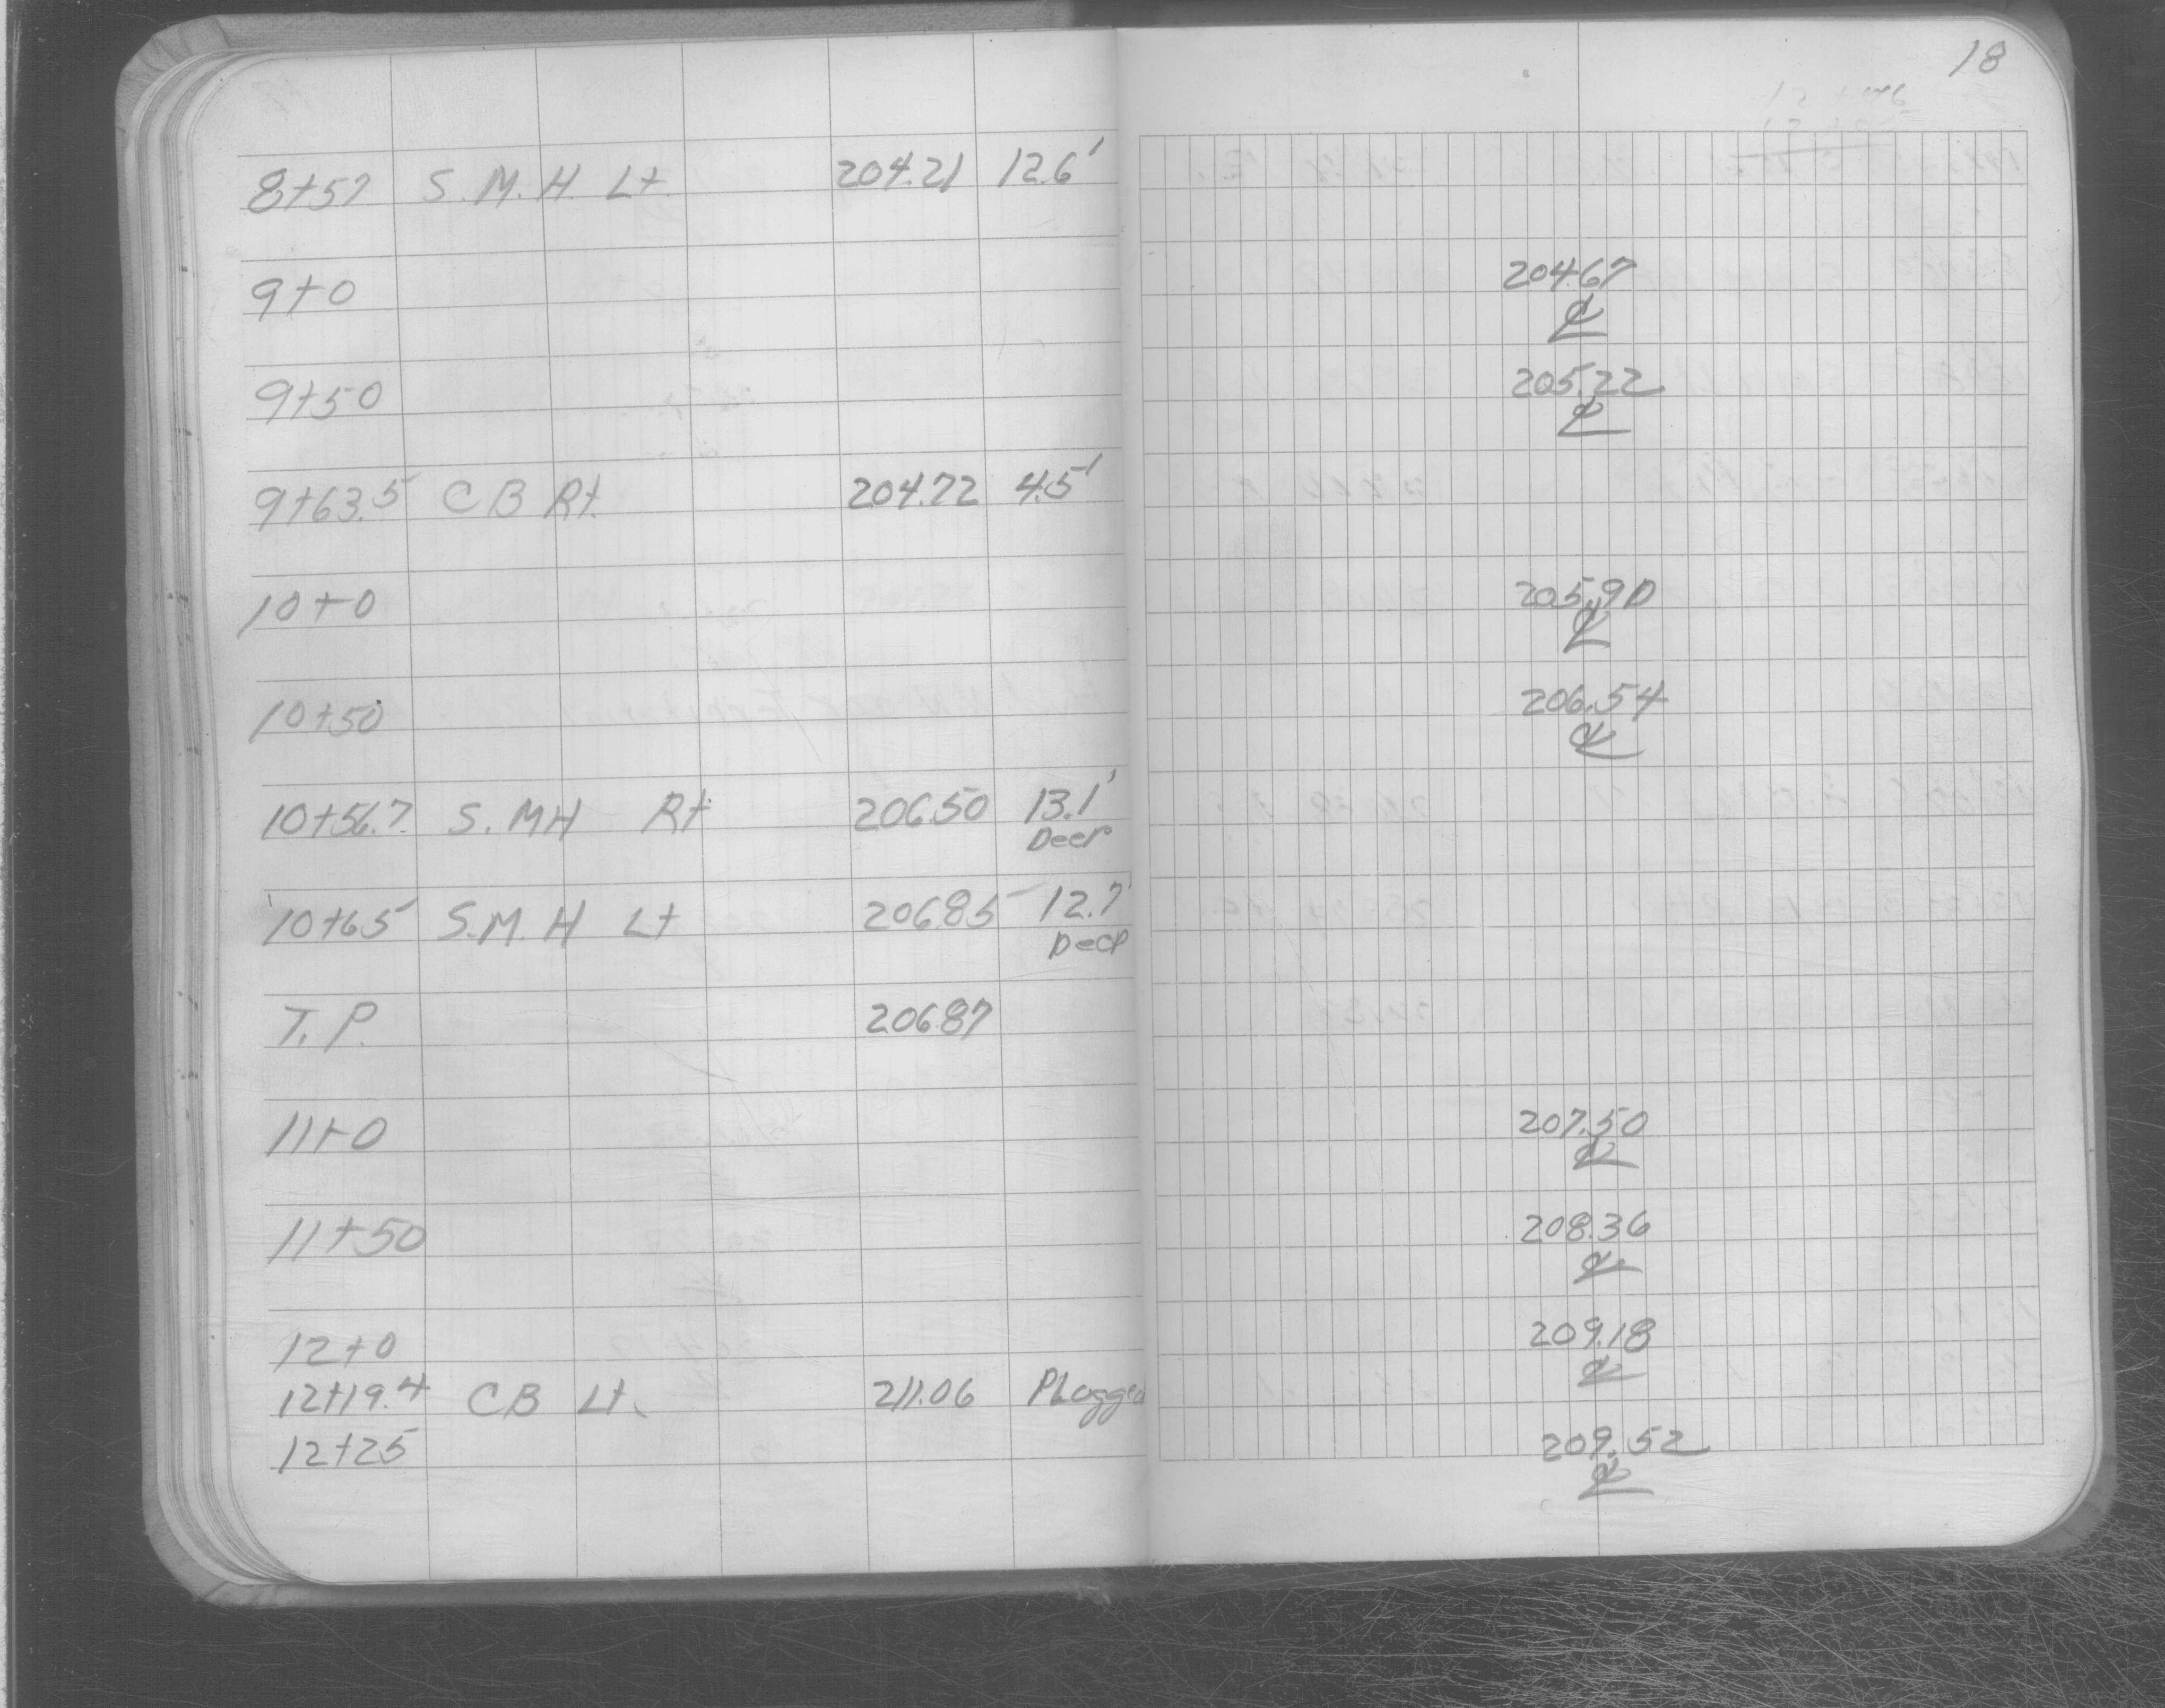 18
8+57 S.M.H. Lt. 204.21 12.6'
9+0 204.67
℄
9+50 205.22
℄
9+63.5 CB Rt. 204.72 4.5'
10+0 205.90
℄
10+50 206.54
℄
10+56.7 S.MH Rt. 206.50 13.1'
Deep
10+65 S.M.H Lt 206.85 12.7'
Deep
T.P. 206.87
11+0 207.50
℄
11+50 208.36
℄
12+0 209.18
℄
12+19.4 CB Lt. 211.06 PLugged
12+25 209.52
℄